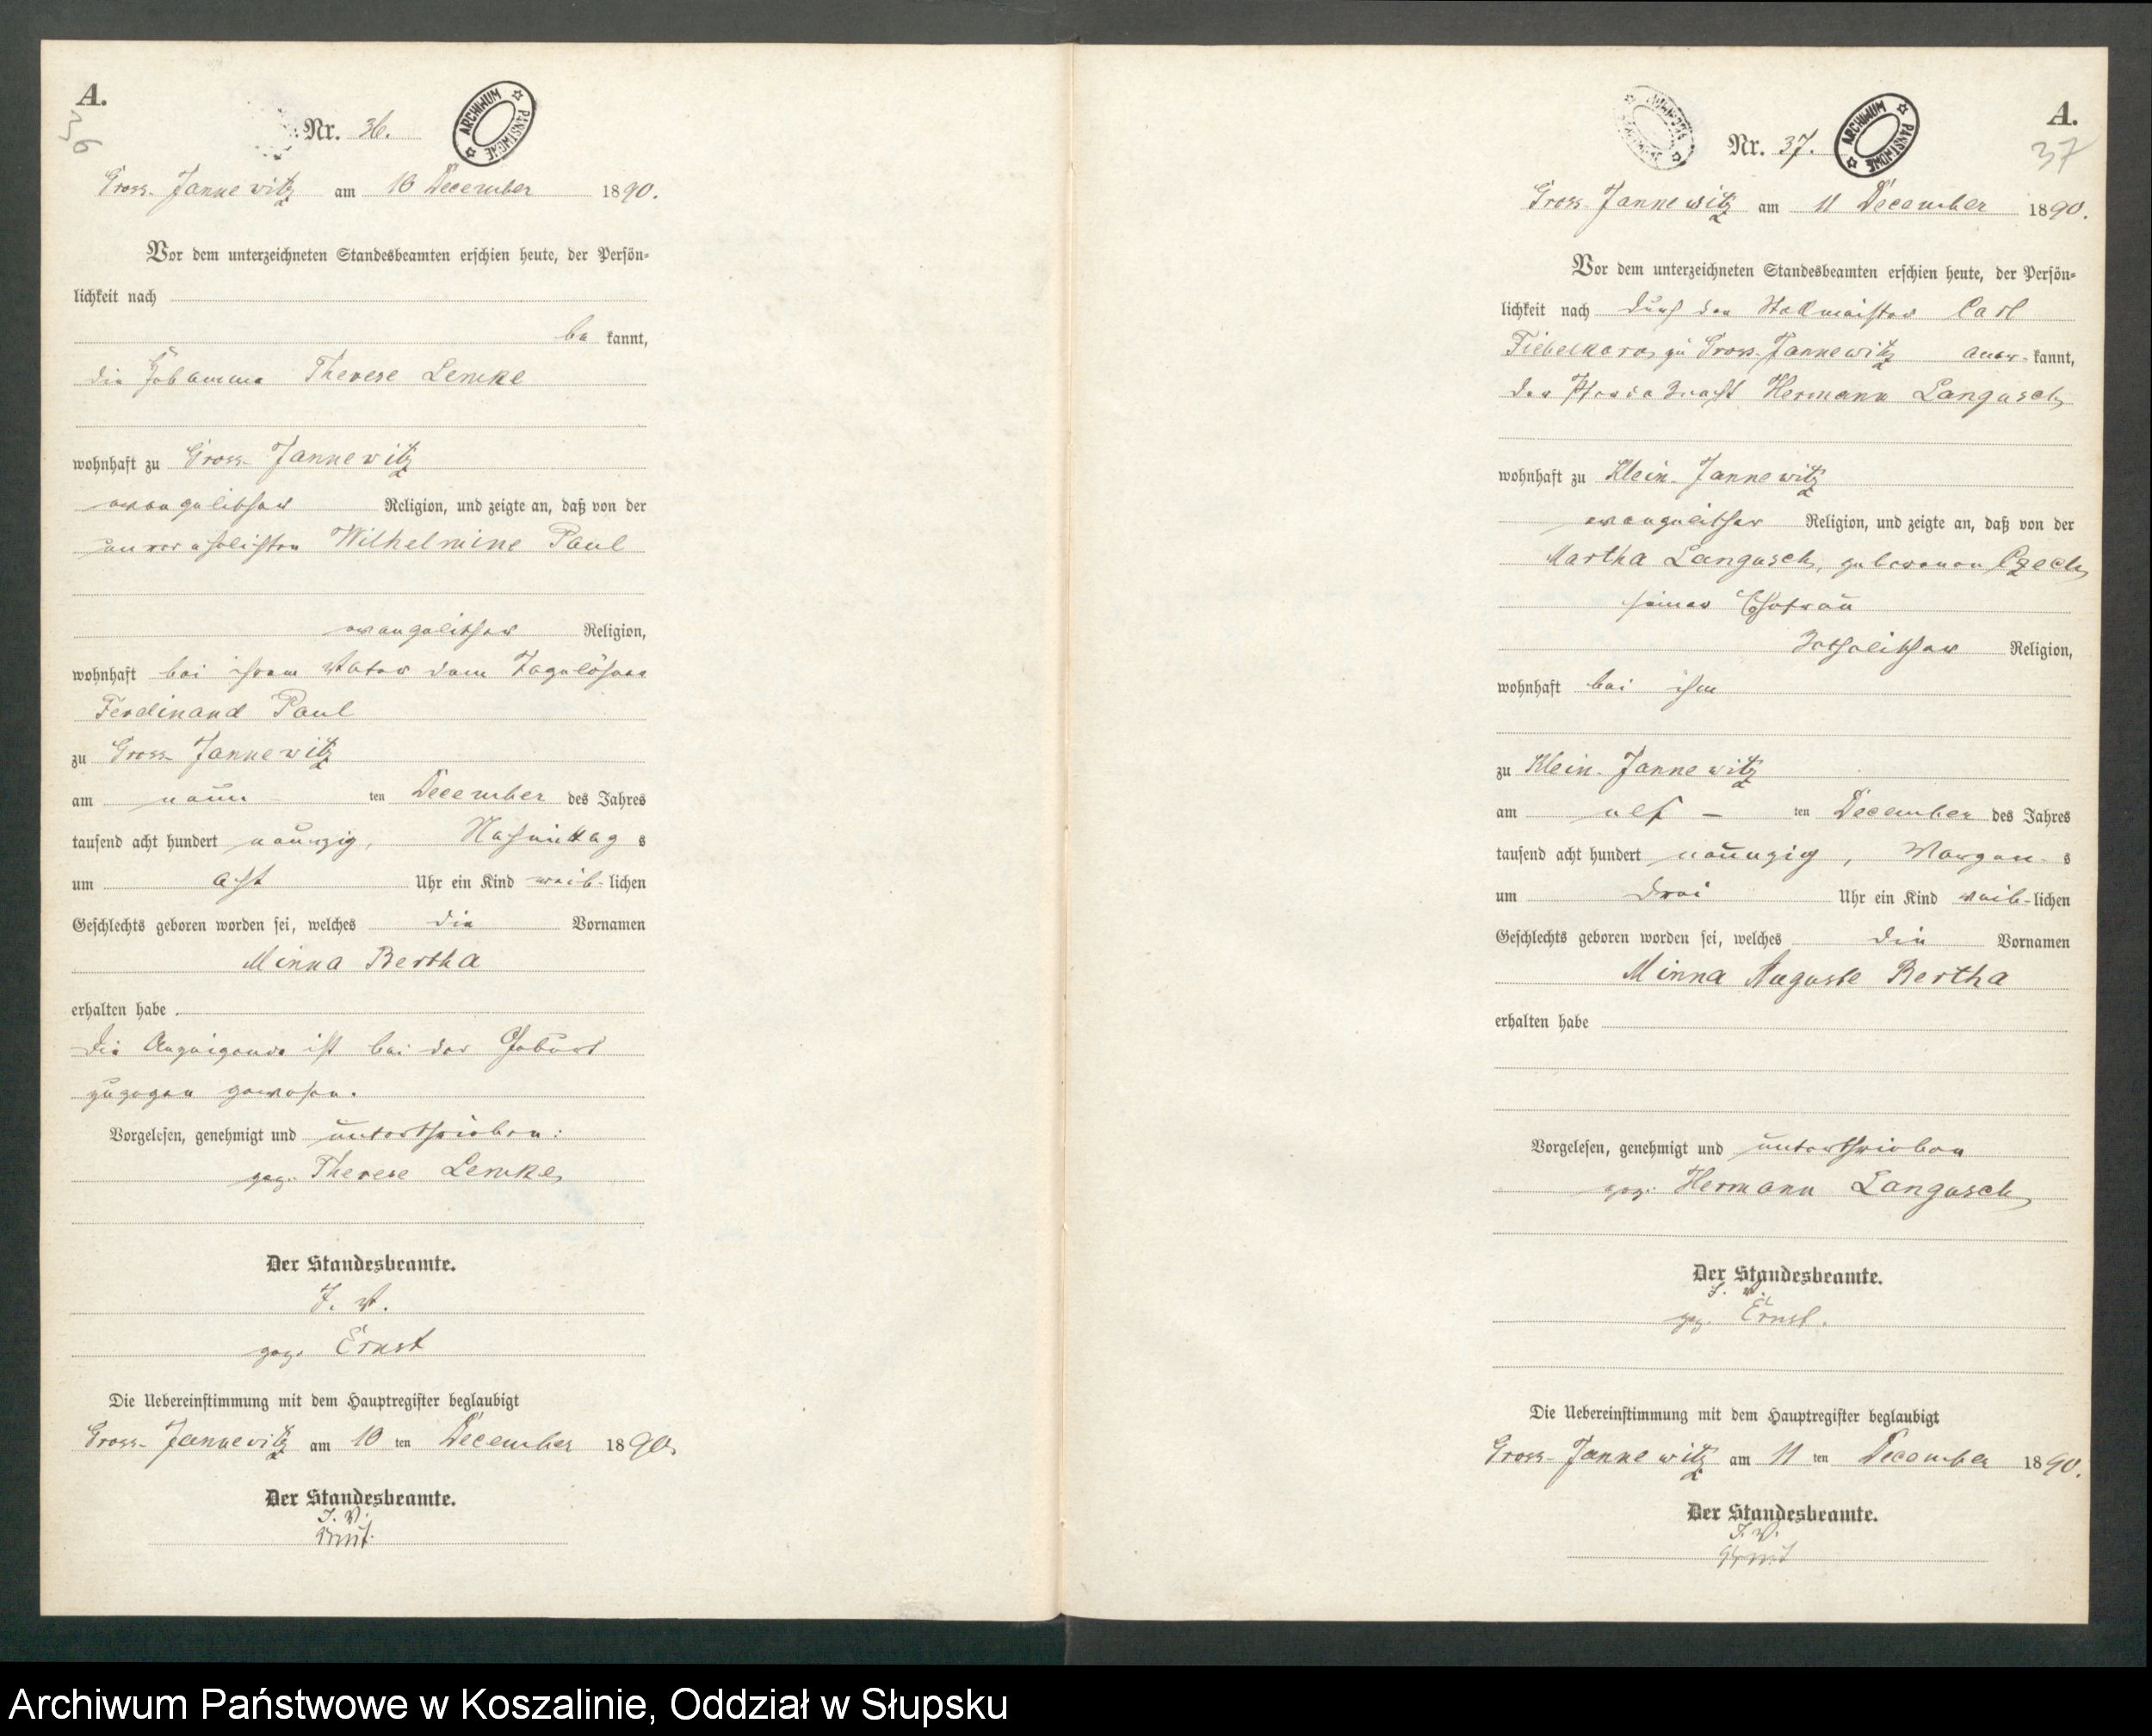 A.
36
Nr. 36.
ARCHIWUM PAŃSTWOWE
Gross-Jannewitz am 10 December 1890.
Vor dem unterzeichneten Standesbeamten erschien heute, der Persön-
lichkeit nach
be kannt,
die Hebamme Therese Lemke
wohnhaft zu Gross-Jannewitz
evangelischer Religion, und zeigte an, daß von der
unverehelichten Wilhelmine Paul
evangelischer Religion,
wohnhaft bei ihrem Vater dem Tagelöhner
Ferdinand Paul
zu Gross Jannewitz
am neun ten December des Jahres
tausend acht hundert neunzig, Nachmittag s
um acht Uhr ein Kind weib-lichen
Geschlechts geboren worden sei, welches die Vornamen
Minna Bertha
erhalten habe.
Die Anzeigende ist bei der Geburt
zugegen gewesen.
Vorgelesen, genehmigt und unterschrieben:
gez. Therese Lemke
Der Standesbeamte.
J. V.
gez. Ernst
Die Uebereinstimmung mit dem Hauptregister beglaubigt
Gross-Jannewitz am 10 ten December 1890.
Der Standesbeamte.
J. V.
Ernst.
A.
37
Nr. 37.
ARCHIWUM PAŃSTWOWE
Gross-Jannewitz am 11 December 1890.
Vor dem unterzeichneten Standesbeamten erschien heute, der Persön-
lichkeit nach durch den Stellmeister Carl
Fiebelkorn zu Gross-Jannewitz aner-kannt,
der Pferdeknecht Hermann Langusch
wohnhaft zu Klein-Jannewitz
evangelischer Religion, und zeigte an, daß von der
Martha Langusch, geborenen Czech
seiner Ehefrau
katholischer Religion,
wohnhaft bei ihm
zu Klein-Jannewitz
am elf - ten December des Jahres
tausend acht hundert neunzig, Morgen s
um drei Uhr ein Kind weib-lichen
Geschlechts geboren worden sei, welches die Vornamen
Minna Auguste Bertha
erhalten habe
Vorgelesen, genehmigt und unterschrieben
gez. Hermann Langusch
Der Standesbeamte.
J. V.
gez. Ernst.
Die Uebereinstimmung mit dem Hauptregister beglaubigt
Gross-Jannewitz am 11 ten December 1890.
Der Standesbeamte.
J. V.
Ernst
Archiwum Państwowe w Koszalinie, Oddział w Słupsku